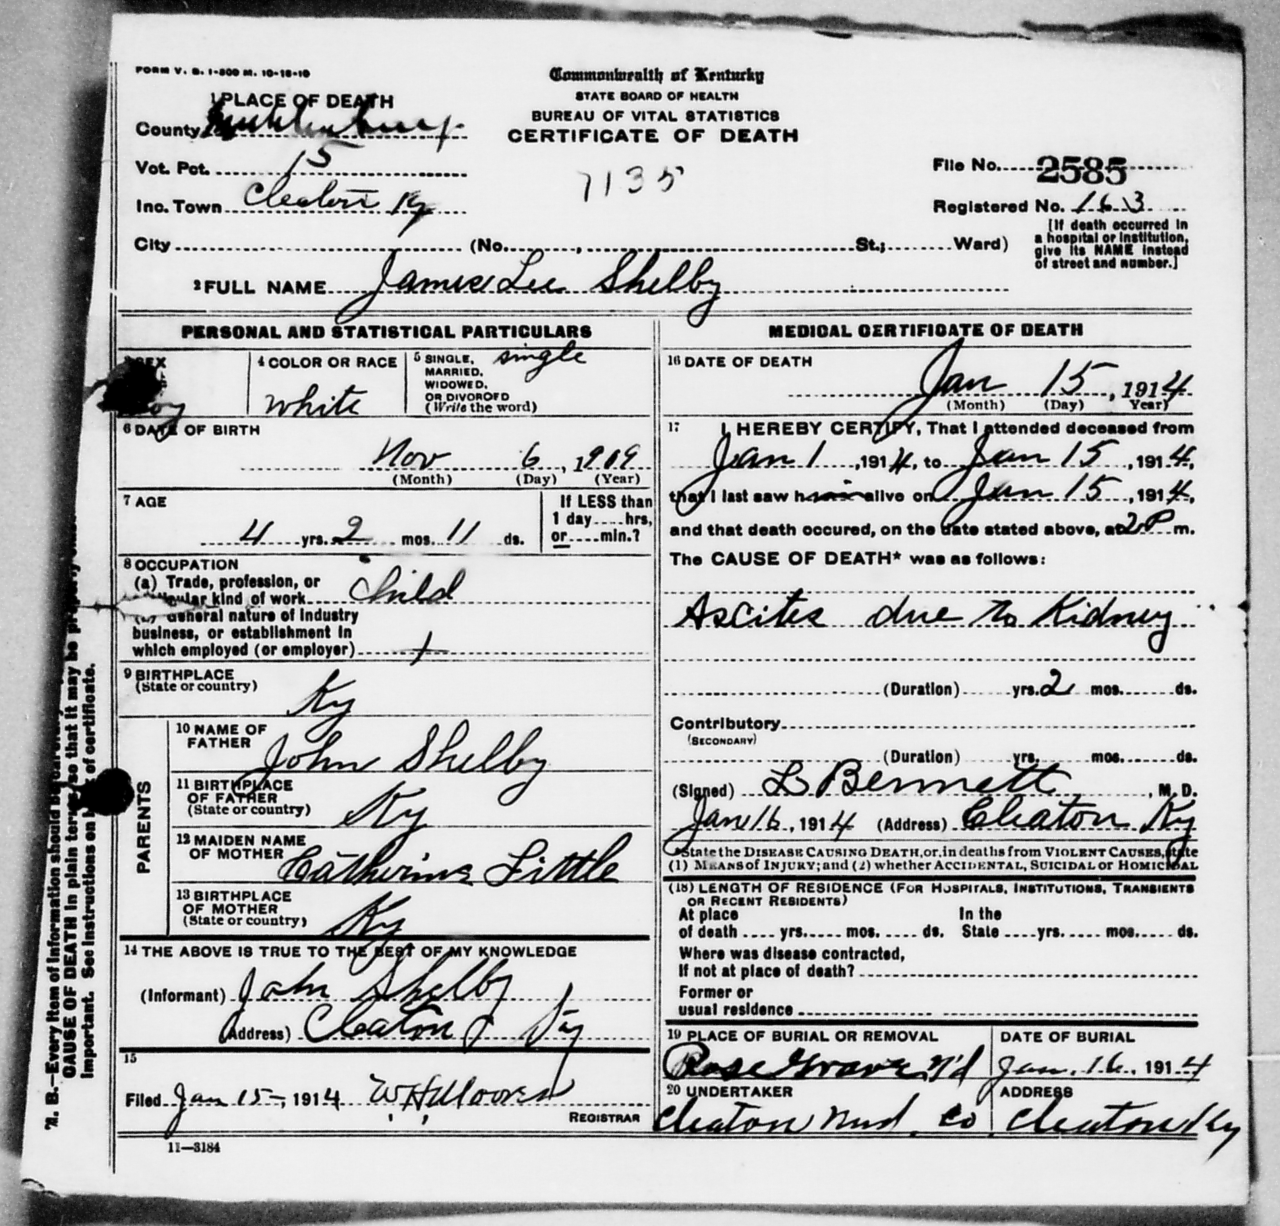 FORM V. S. 1-500 M. 10-18-10
Commonwealth of Kentucky
STATE BOARD OF HEALTH
BUREAU OF VITAL STATISTICS
CERTIFICATE OF DEATH
7135
1 PLACE OF DEATH
County Muhlenburg
Vot. Pct. 15
Inc. Town Cleaton Ky
City (No. , St.; Ward)
File No. 2585
Registered No. 163
[If death occurred in
a hospital or institution,
give its NAME instead
of street and number.]
2 FULL NAME James Lee Shelby
PERSONAL AND STATISTICAL PARTICULARS
3 SEX
Boy
4 COLOR OR RACE
white
5 SINGLE,
MARRIED,
WIDOWED,
OR DIVORCED
(Write the word)
single
6 DATE OF BIRTH
Nov 6, 1909
(Month) (Day) (Year)
7 AGE
4 yrs. 2 mos. 11 ds.
If LESS than
1 day hrs,
or min.?
8 OCCUPATION
(a) Trade, profession, or
particular kind of work Child
(b) General nature of industry
business, or establishment in
which employed (or employer)
9 BIRTHPLACE
(State or country)
Ky
PARENTS
10 NAME OF
FATHER
John Shelby
11 BIRTHPLACE
OF FATHER
(State or country)
Ky
12 MAIDEN NAME
OF MOTHER
Catherine Little
13 BIRTHPLACE
OF MOTHER
(State or country)
Ky
14 THE ABOVE IS TRUE TO THE BEST OF MY KNOWLEDGE
(Informant) John Shelby
(Address) Cleaton Ky
15
Filed Jan 15-, 1914 W.H. Moores
REGISTRAR
11-3184
MEDICAL CERTIFICATE OF DEATH
16 DATE OF DEATH
Jan 15, 1914
(Month) (Day) Year)
17 I HEREBY CERTIFY, That I attended deceased from
Jan 1, 1914, to Jan 15, 1914,
that I last saw him alive on Jan 15, 1914,
and that death occured, on the date stated above, at 2 P m.
The CAUSE OF DEATH* was as follows:
Ascites due to Kidney
(Duration) yrs. 2 mos. ds.
Contributory
(SECONDARY)
(Duration) yrs. mos. ds.
(Signed) L Bennett, M. D.
Jan 16, 1914 (Address) Cleaton Ky
*State the DISEASE CAUSING DEATH, or, in deaths from VIOLENT CAUSES, state
(1) MEANS of INJURY; and (2) whether ACCIDENTAL, SUICIDAL or HOMICIDAL
(18) LENGTH OF RESIDENCE (FOR HOSPITALS, INSTITUTIONS, TRANSIENTS
OR RECENT RESIDENTS)
At place
of death yrs. mos. ds.
In the
State yrs. mos. ds.
Where was disease contracted,
If not at place of death?
Former or
usual residence
19 PLACE OF BURIAL OR REMOVAL
Rose Grave
DATE OF BURIAL
Jan. 16, 1914
20 UNDERTAKER
Cleaton Co
ADDRESS
Cleaton Ky
N. B.—Every item of information should be
CAUSE OF DEATH in plain terms, so that it may be
important. See instructions on back of certificate.